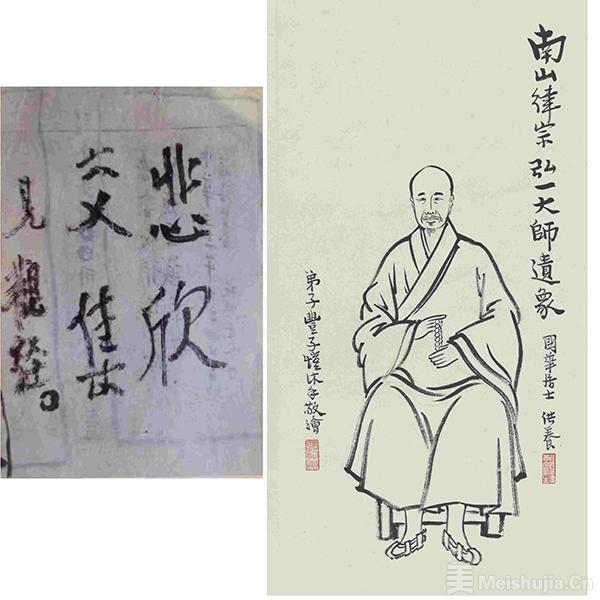 悲欣
交集
見觀經。
南山律宗弘一大師遺象
國華居士 供養
弟子豐子愷沐手敬繪
美 Meishujia.Cn